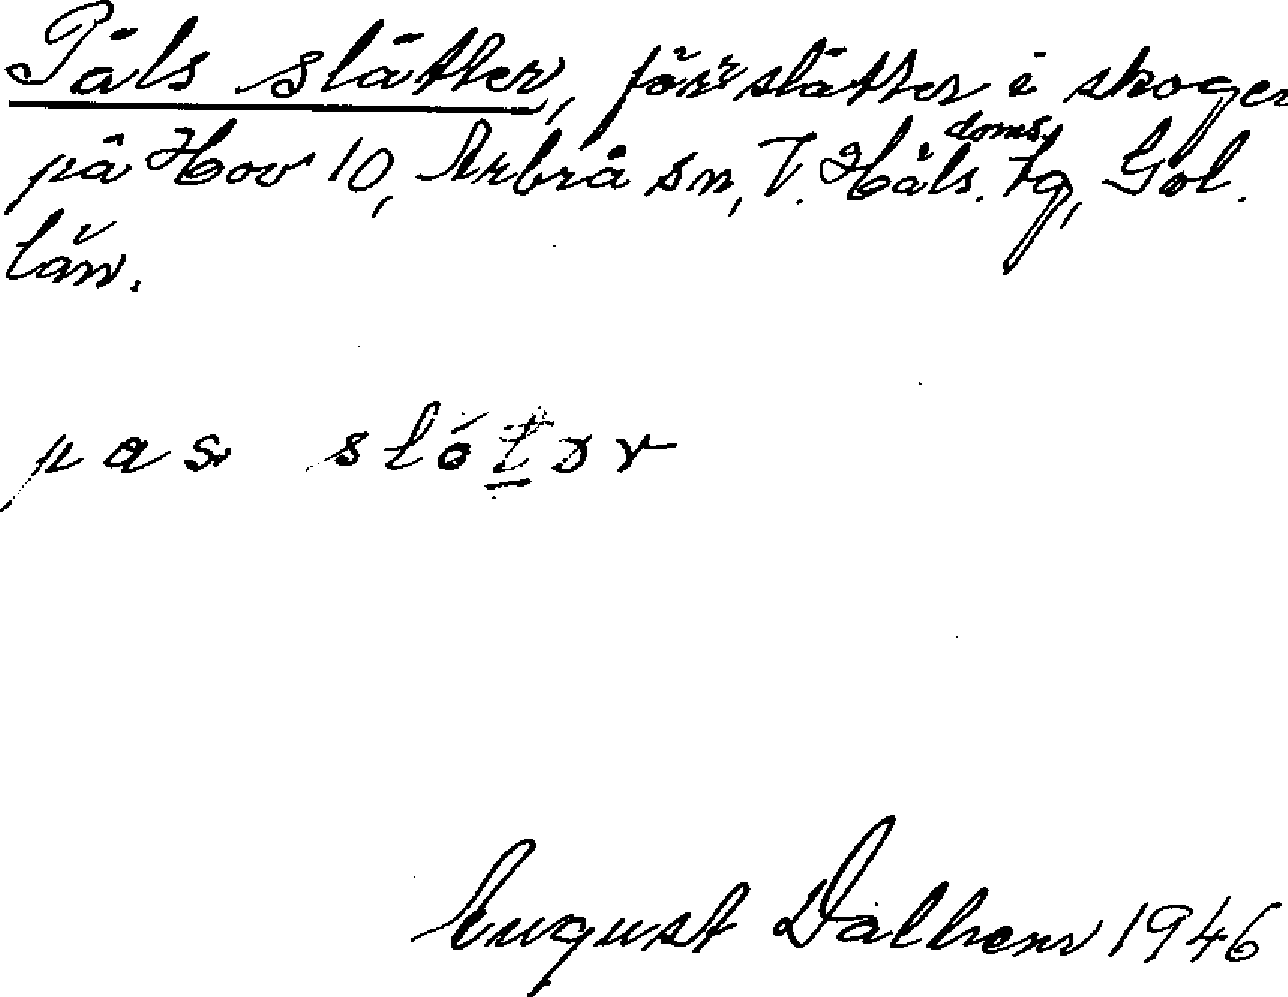 Päls slåtter, förr slåtter i skogen
på Hov 10, Arbrå sn, V. Häls. domsg. tg, Gvl.
län.
August Dalhem 1946